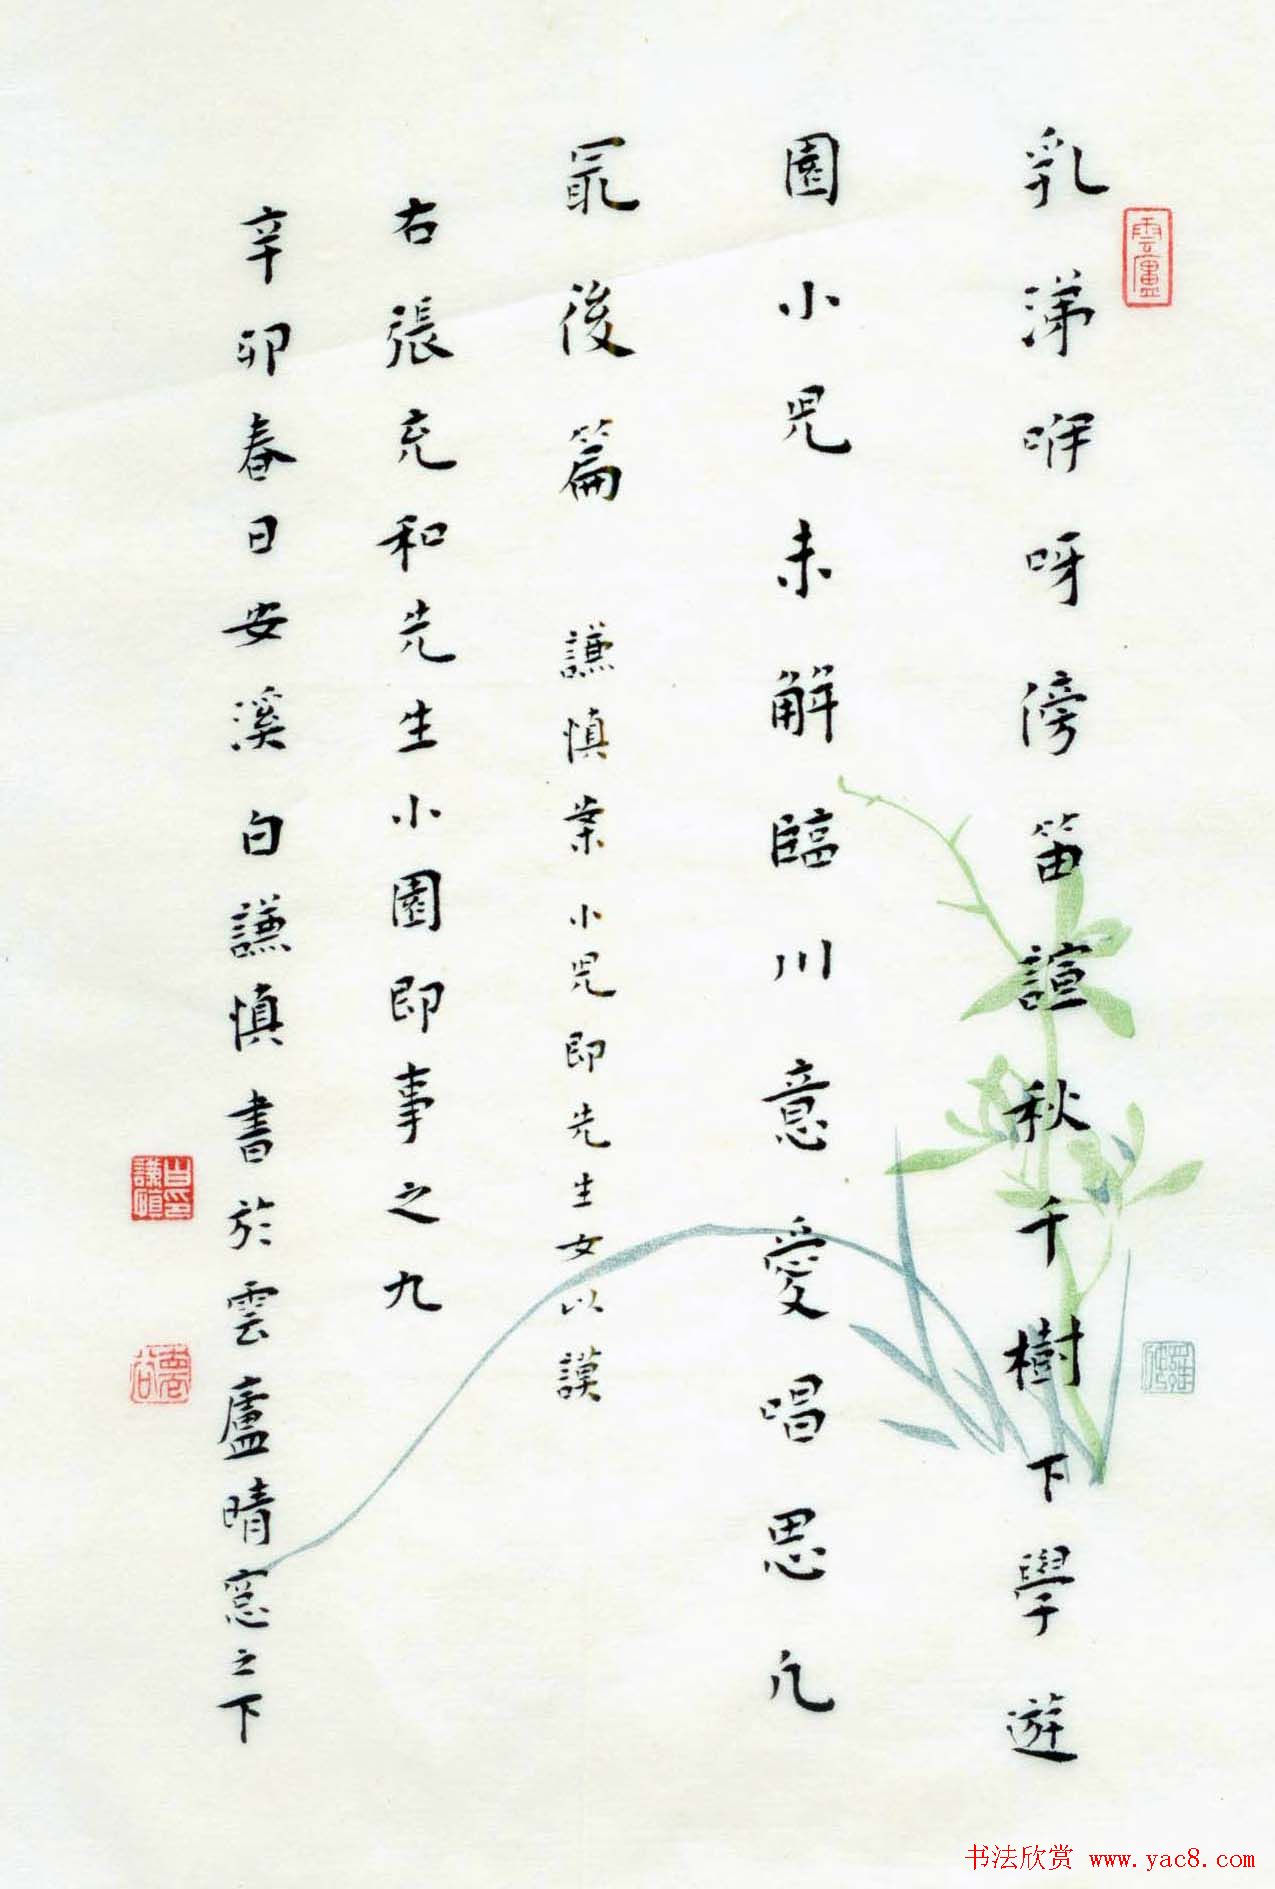 雲廬
乳涕咿呀傍笛諠秋千樹下學遊
園小兒未解臨川意愛唱思凡
冣後篇 謙慎案小兒即先生女以謨
右張充和先生小園即事之九
辛卯春日安溪白謙慎書於雲廬晴窓之下
白謙慎印
书法欣赏 www.yac8.com